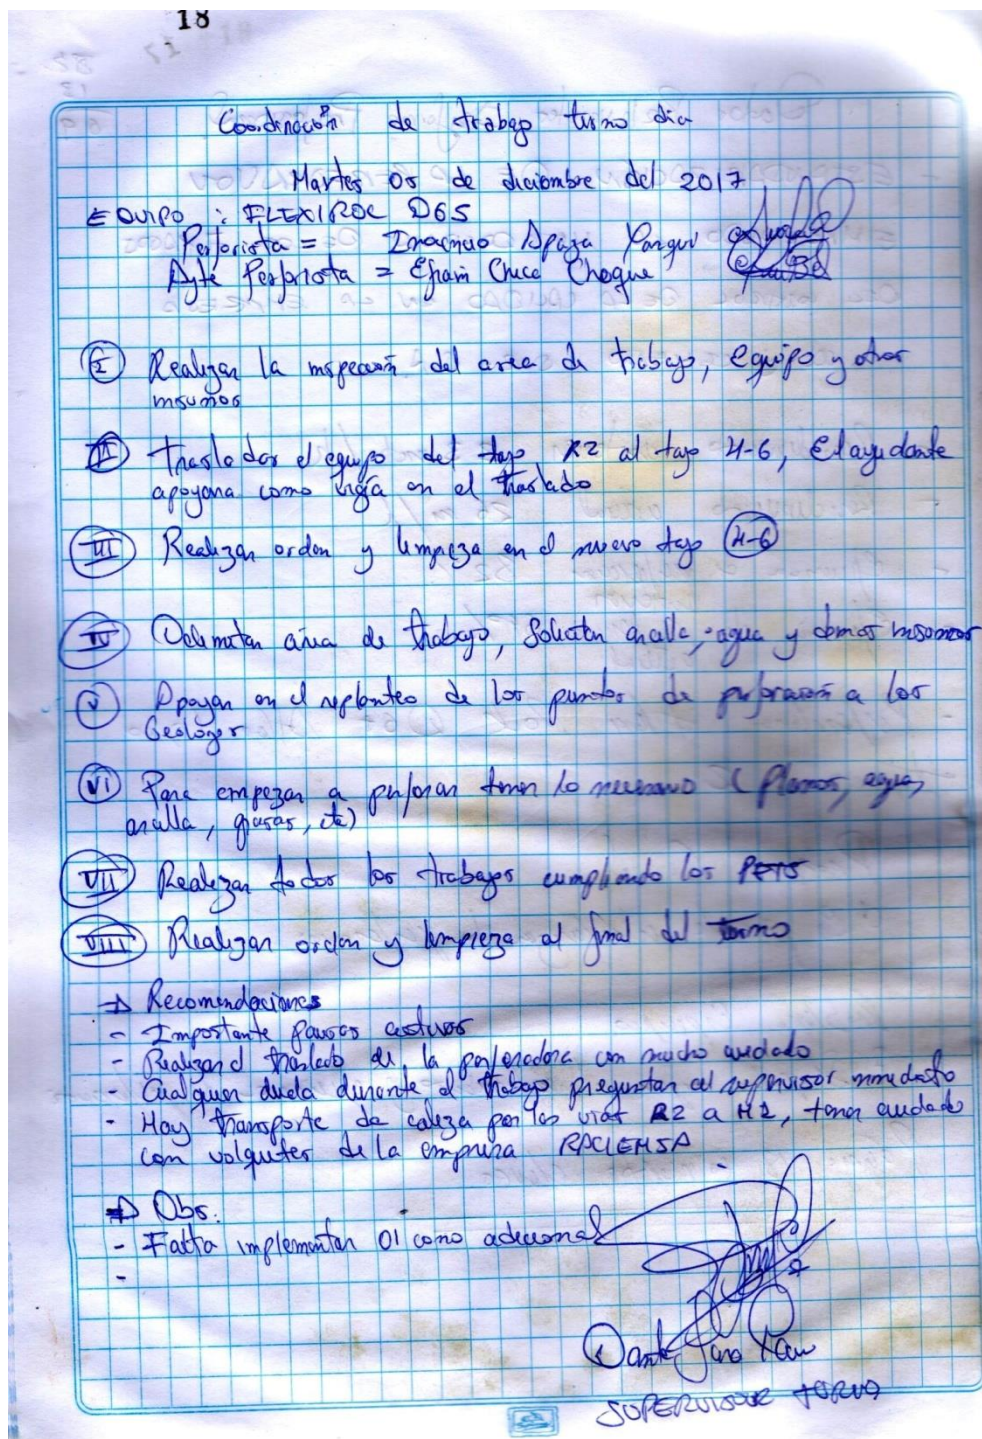 18
Coordinación de trabajo turno dia
Martes 05 de diciembre del 2017
EQUIPO : FLEXIROC D65
Perforista = Apaza
Ayte Perforista = Efrain Choque
I Realizar la inspección del area de trabajo, equipo y otros
insumos
II Trasladar el equipo del tajo R2 al tajo 4-6, El ayudante
apoyara como vigía en el traslado
III Realizar orden y limpieza en el nuevo tajo 4-6
IV Delimitar área de trabajo, Solicitar arcilla, agua y demas insumos
V Apoyar en el replanteo de los puntos de perforación a los
Geólogos
VI Para empezar a perforar tener lo necesario ( Planos, agua,
arcilla, grasas, etc)
VII Realizar todos los trabajos cumpliendo los PETS
VIII Realizar orden y limpieza al final del turno
→ Recomendaciones
- Importante pausas activas
- Realizar el traslado de la perforadora con mucho cuidado
- Cualquier duda durante el trabajo preguntar al supervisor inmediato
- Hay transporte de caliza por las vías R2 a H2, tener cuidado
con volquetes de la empresa RACIEMSA
→ Obs.
- Falta implementar 01 cono adicional
-
Dante
SUPERVISOR TURNO